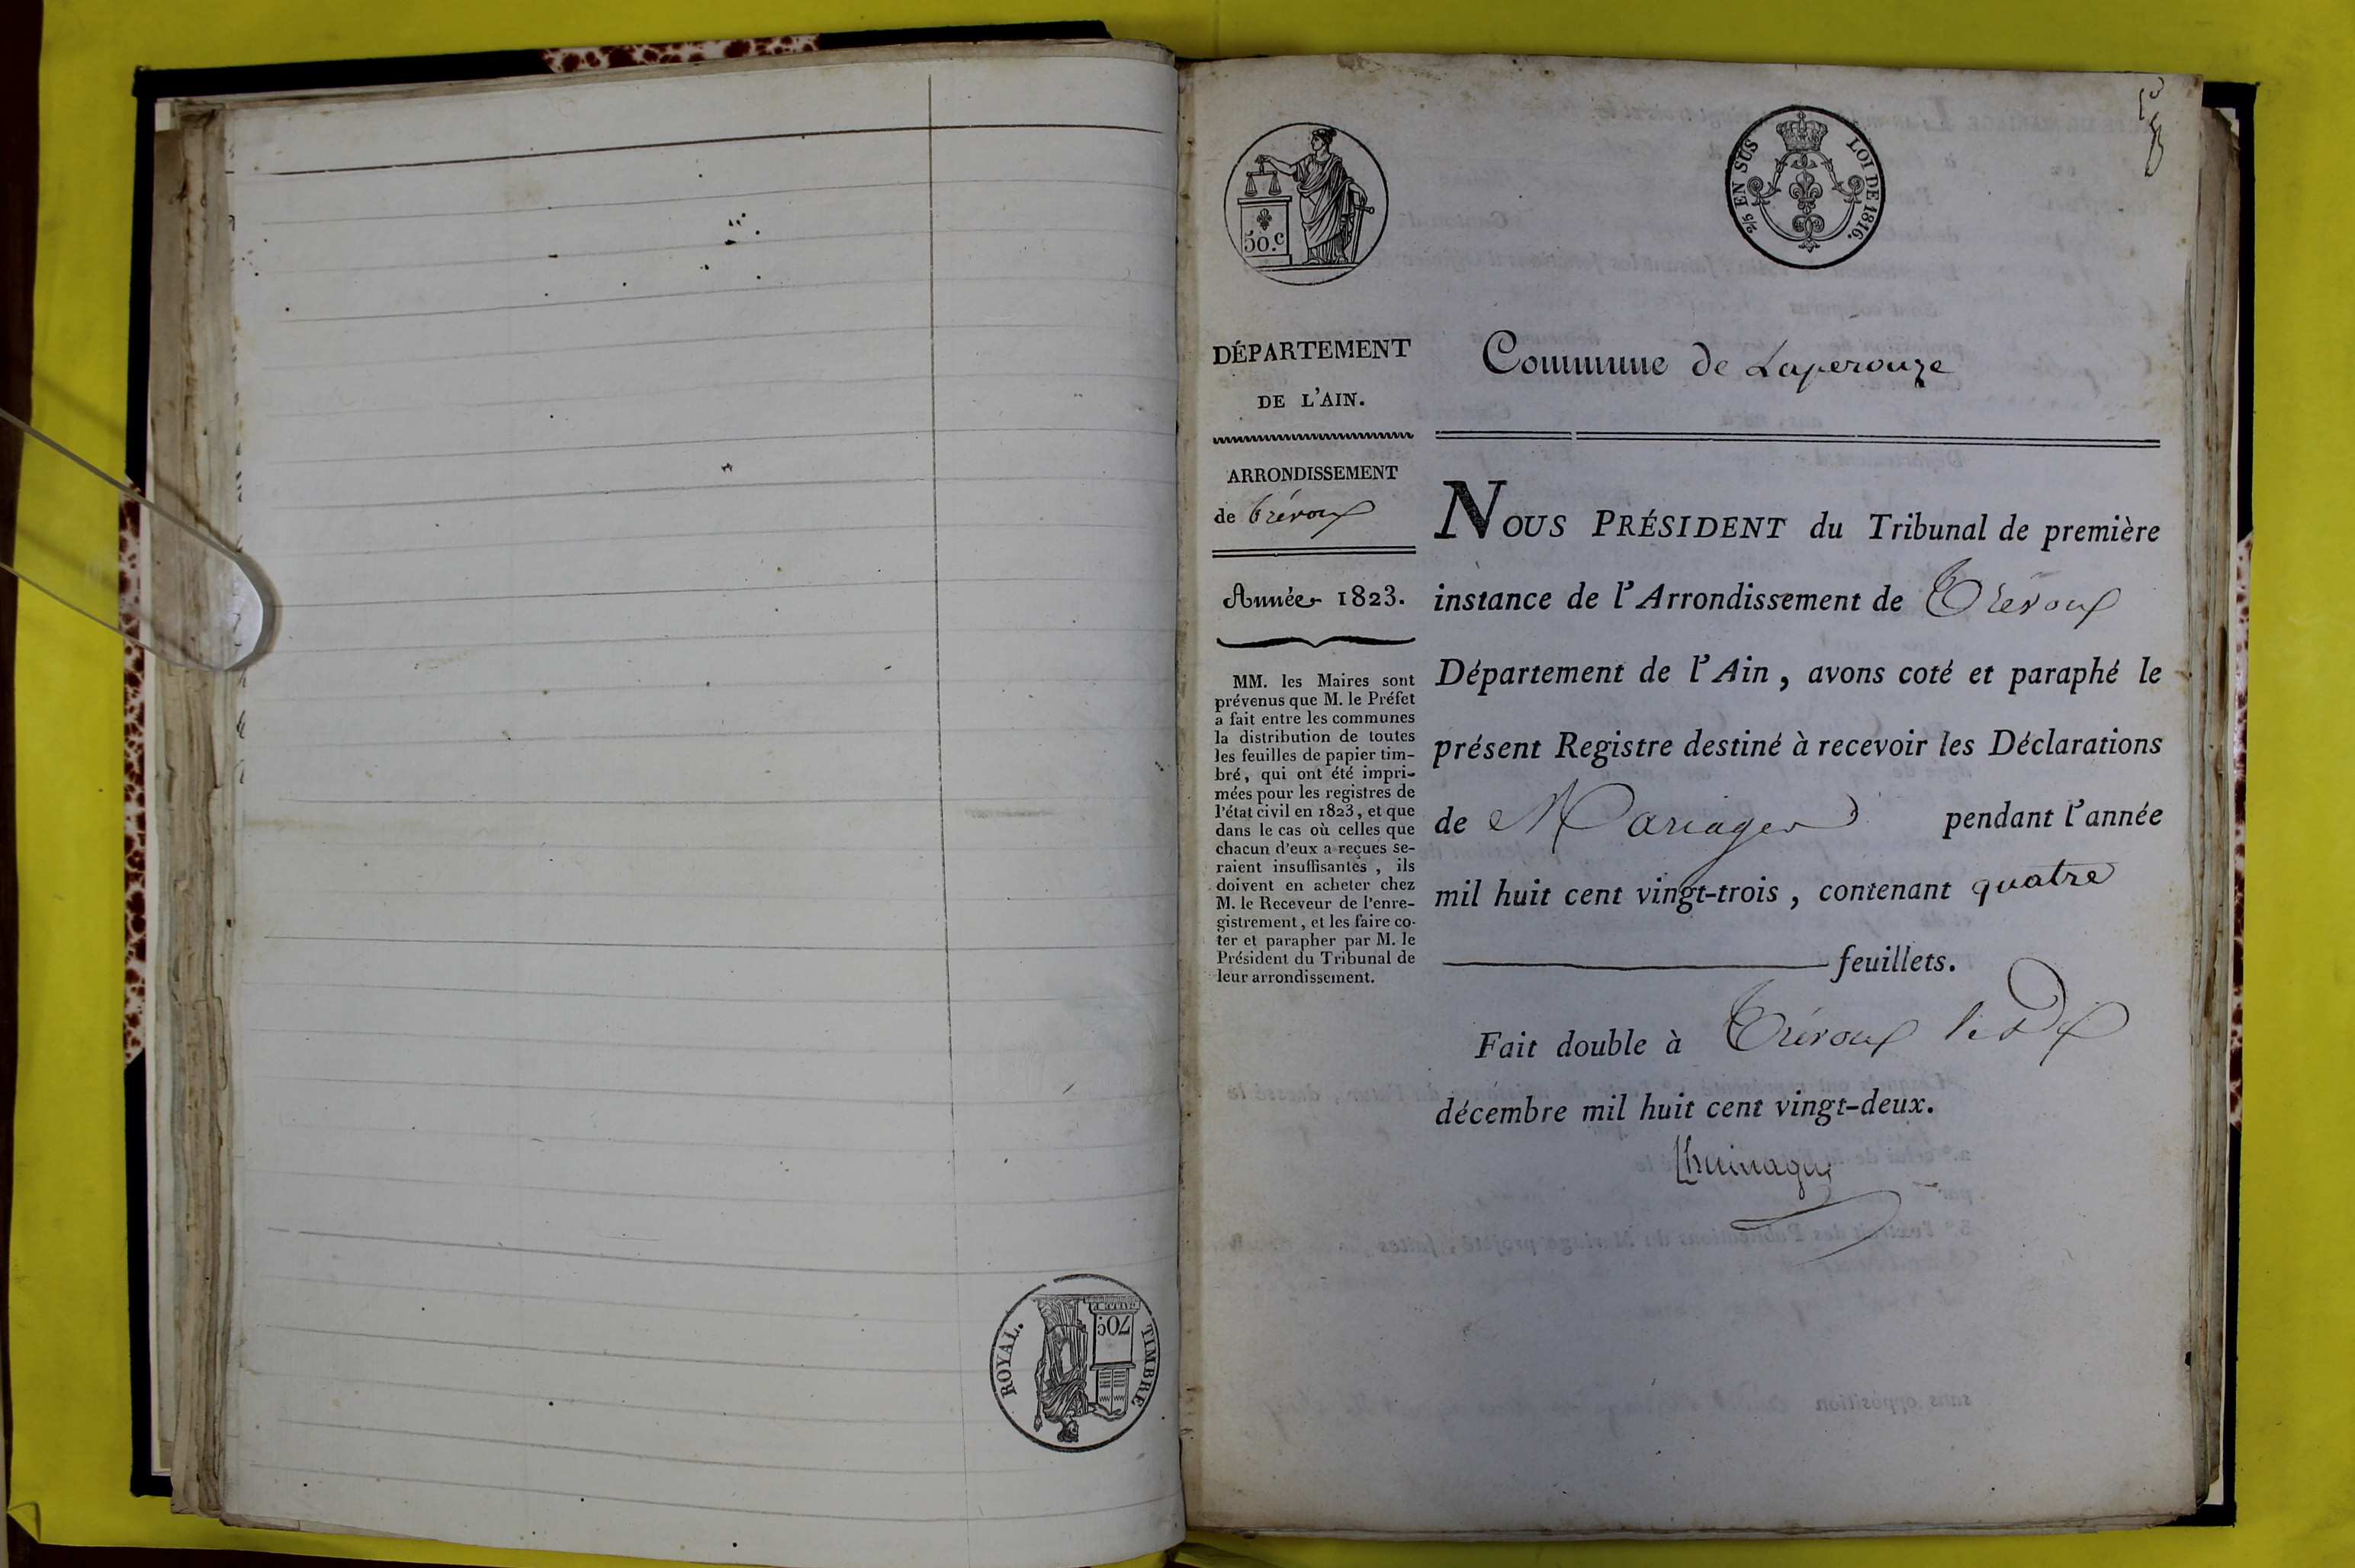 TIMBRE ROYAL.
70c
50.c
2/5 EN SUS LOI DE 1816.
DÉPARTEMENT
DE L'AIN.
ARRONDISSEMENT
de Trévoux
Année 1823.
MM. les Maires sont
prévenus que M. le Préfet
a fait entre les communes
la distribution de toutes
les feuilles de papier tim-
bré, qui ont été impri-
mées pour les registres de
l'état civil en 1823, et que
dans le cas où celles que
chacun d'eux a reçues se-
raient insuffisantes, ils
doivent en acheter chez
M. le Receveur de l'enre-
gistrement, et les faire co-
ter et parapher par M. le
Président du Tribunal de
leur arrondissement.
Commune de Laperouze
NOUS PRÉSIDENT du Tribunal de première
instance de l'Arrondissement de Trévoux
Département de l'Ain, avons coté et paraphé le
présent Registre destiné à recevoir les Déclarations
de Mariages pendant l'année
mil huit cent vingt-trois, contenant quatre
feuillets.
Fait double à Trévoux le dix
décembre mil huit cent vingt-deux.